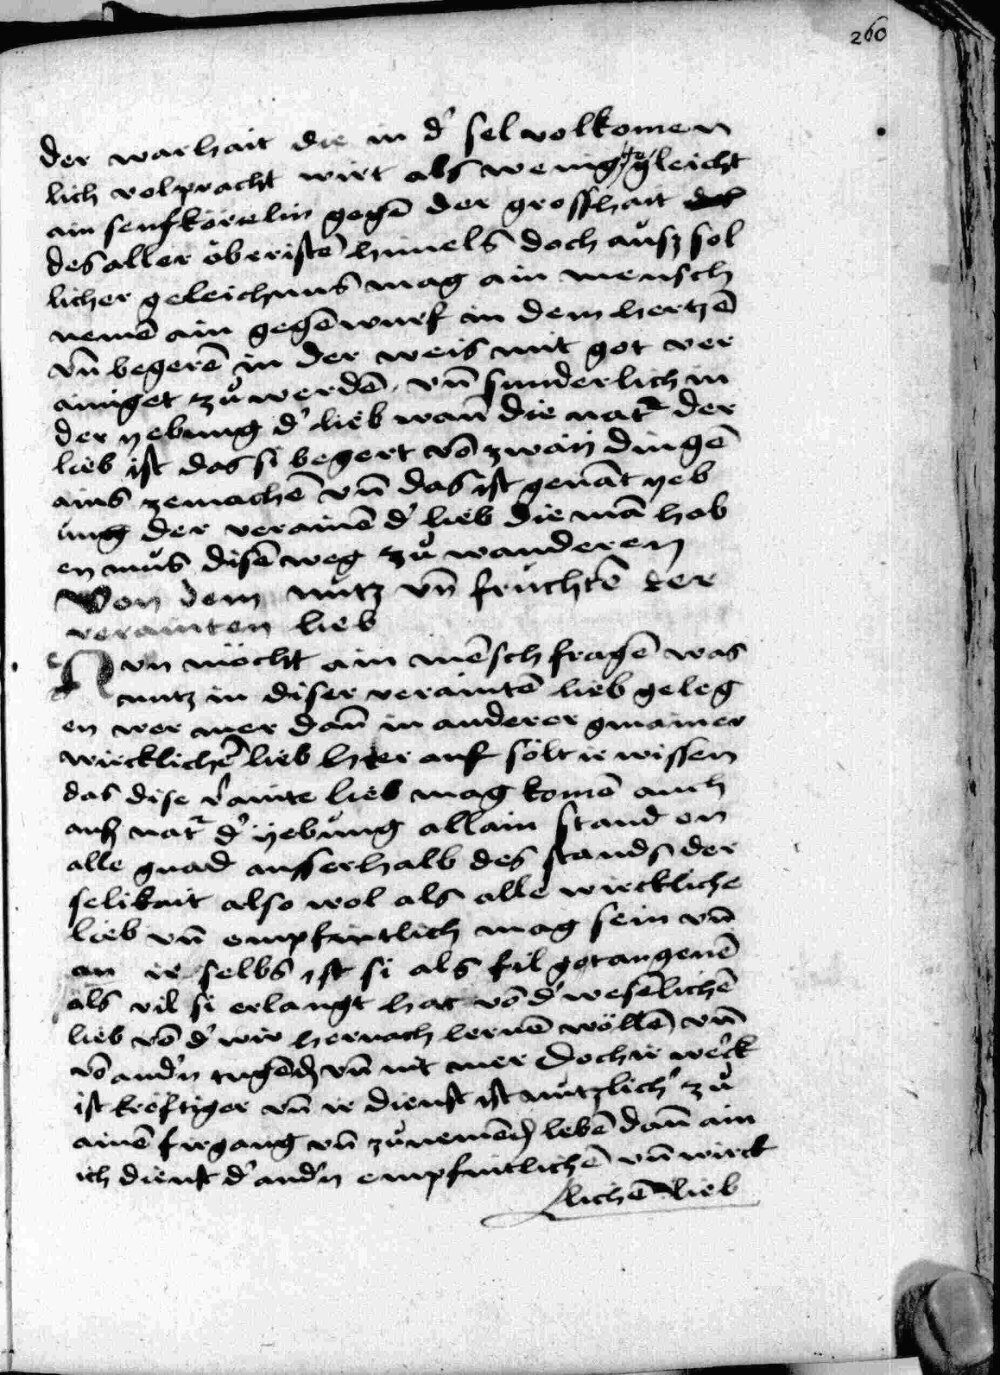 260
der warhait die in d' sel volkomen
lich volpracht wirt als wenig sy gleicht
ain senfkörnlin gegē der grosshait
des aller öberistē himels doch ausz sol
licher geleichnus mag ain mensch
nemē ain gegēwurf in dem hertzē
vn̄ begerē in der weis mit got ver
ainiget zů werdē vn̄ sunderlich in
der yebung d' lieb wan̄ die nat' der
lieb ist das si begert vō zwaӱ dingē
ains zemachē vn̄ das ist genāt yeb
ung der verainē d' lieb die mā hab
en můs disē weg zů wanderen
Von dem nutz vn̄ fruchtē der
verainten lieb
Nun möcht ain mēsch fragē was
nutz in diser veraintē lieb geleg
en wer mer dan̄ in anderer gmainer
wircklichē lieb hier auf sölt ir wissen
das dise v'ainte lieb mag komē auch
ausz nat' d' ӱebung allain stand on
alle gnad ausserhalb des stands der
selikait also wol als alle wirckliche
lieb vn̄ empfintlich mag sein vn̄
an ir selbs ist si als fil got angenē
als vil si erlangt hat vō d' wesēlichē
lieb vō d' wir hernach lernē wöllē vn̄
vō and'n tugēdē vn̄ nit mer doch ir werck
ist kröftiger vn̄ ir dienst ist nützlich' zů
ainē firgang vn̄ zůnemēdē lebē dan̄ ain
ich dienst d' and'n empfintlichē vn̄ wirck
lichē lieb